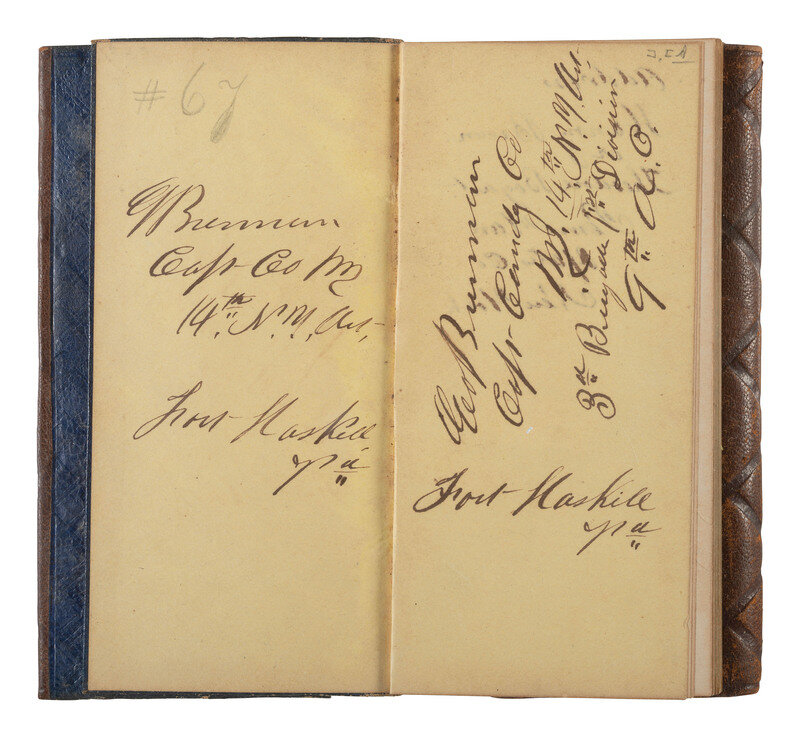 # 67
G Brennan
Capt Co M
14th N.Y. Art,
Fort Haskell
Va
Geo Brennan
Capt Comdg Co
M, 14th N.Y. Art-
3d Brigade 1st Division
9th A. C.
Fort Haskell
Va